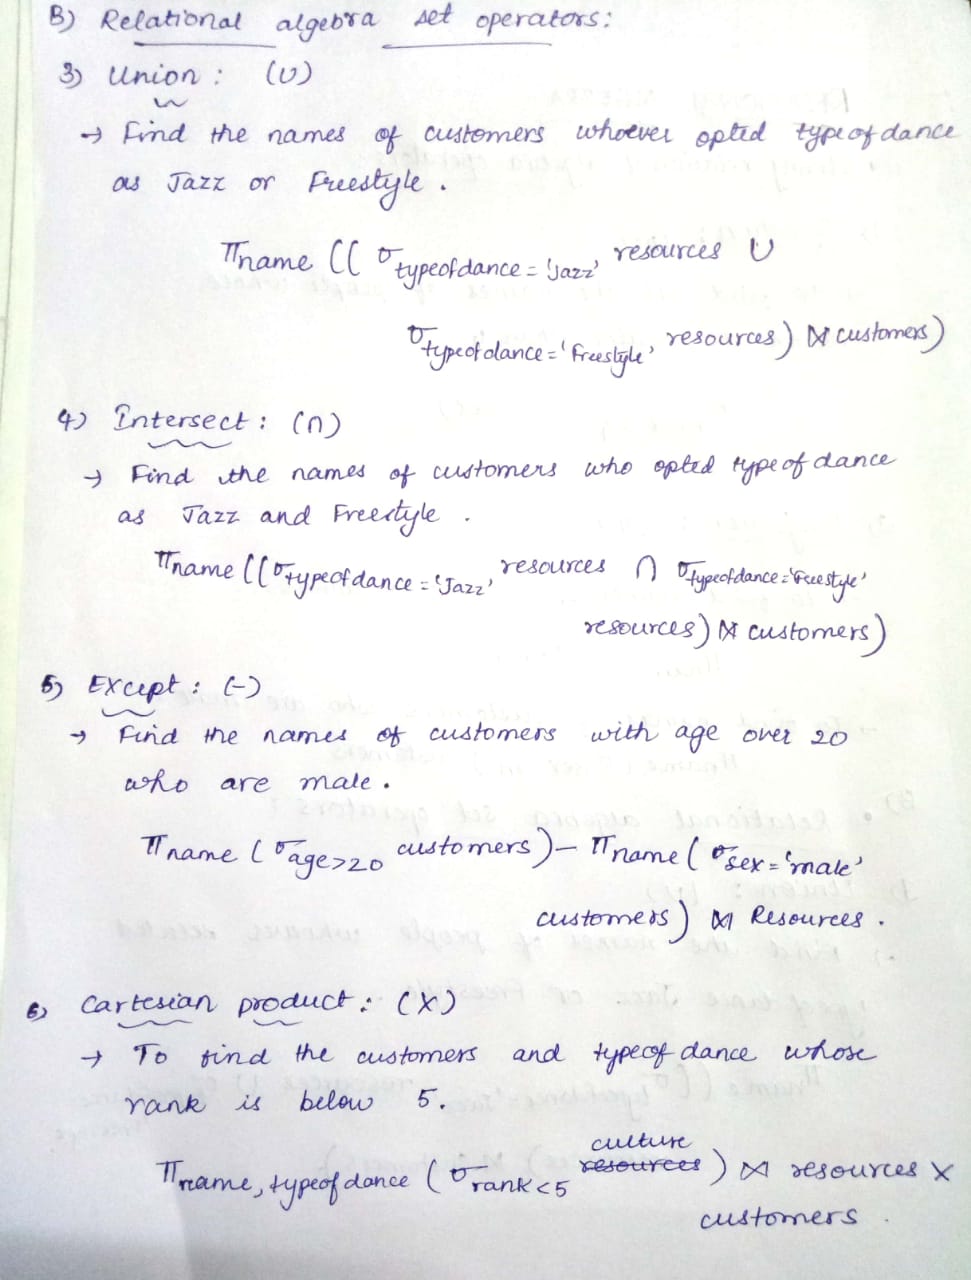 B) Relational algebra set operators:
3) Union : (U)
→ Find the names of customers whoever opted typeofdance
as Jazz or Freestyle .
πname (( σtypeofdance = 'Jazz' resources ∪
σtypeofdance = 'Freestyle' resources) ⋈ customers)
4) Intersect : (∩)
→ Find the names of customers who opted typeofdance
as Jazz and Freestyle .
πname ((σtypeofdance = 'Jazz' resources ∩ σtypeofdance = 'Freestyle'
resources) ⋈ customers)
5) Except : (-)
→ Find the names of customers with age over 20
who are male .
πname (σage>20 customers) – πname ( σsex = 'male'
customers) ⋈ Resources .
6) Cartesian product : (X)
→ To find the customers and typeofdance whose
rank is below 5.
culture
πname, typeofdance (σrank<5 resources) ⋈ resources X
customers .